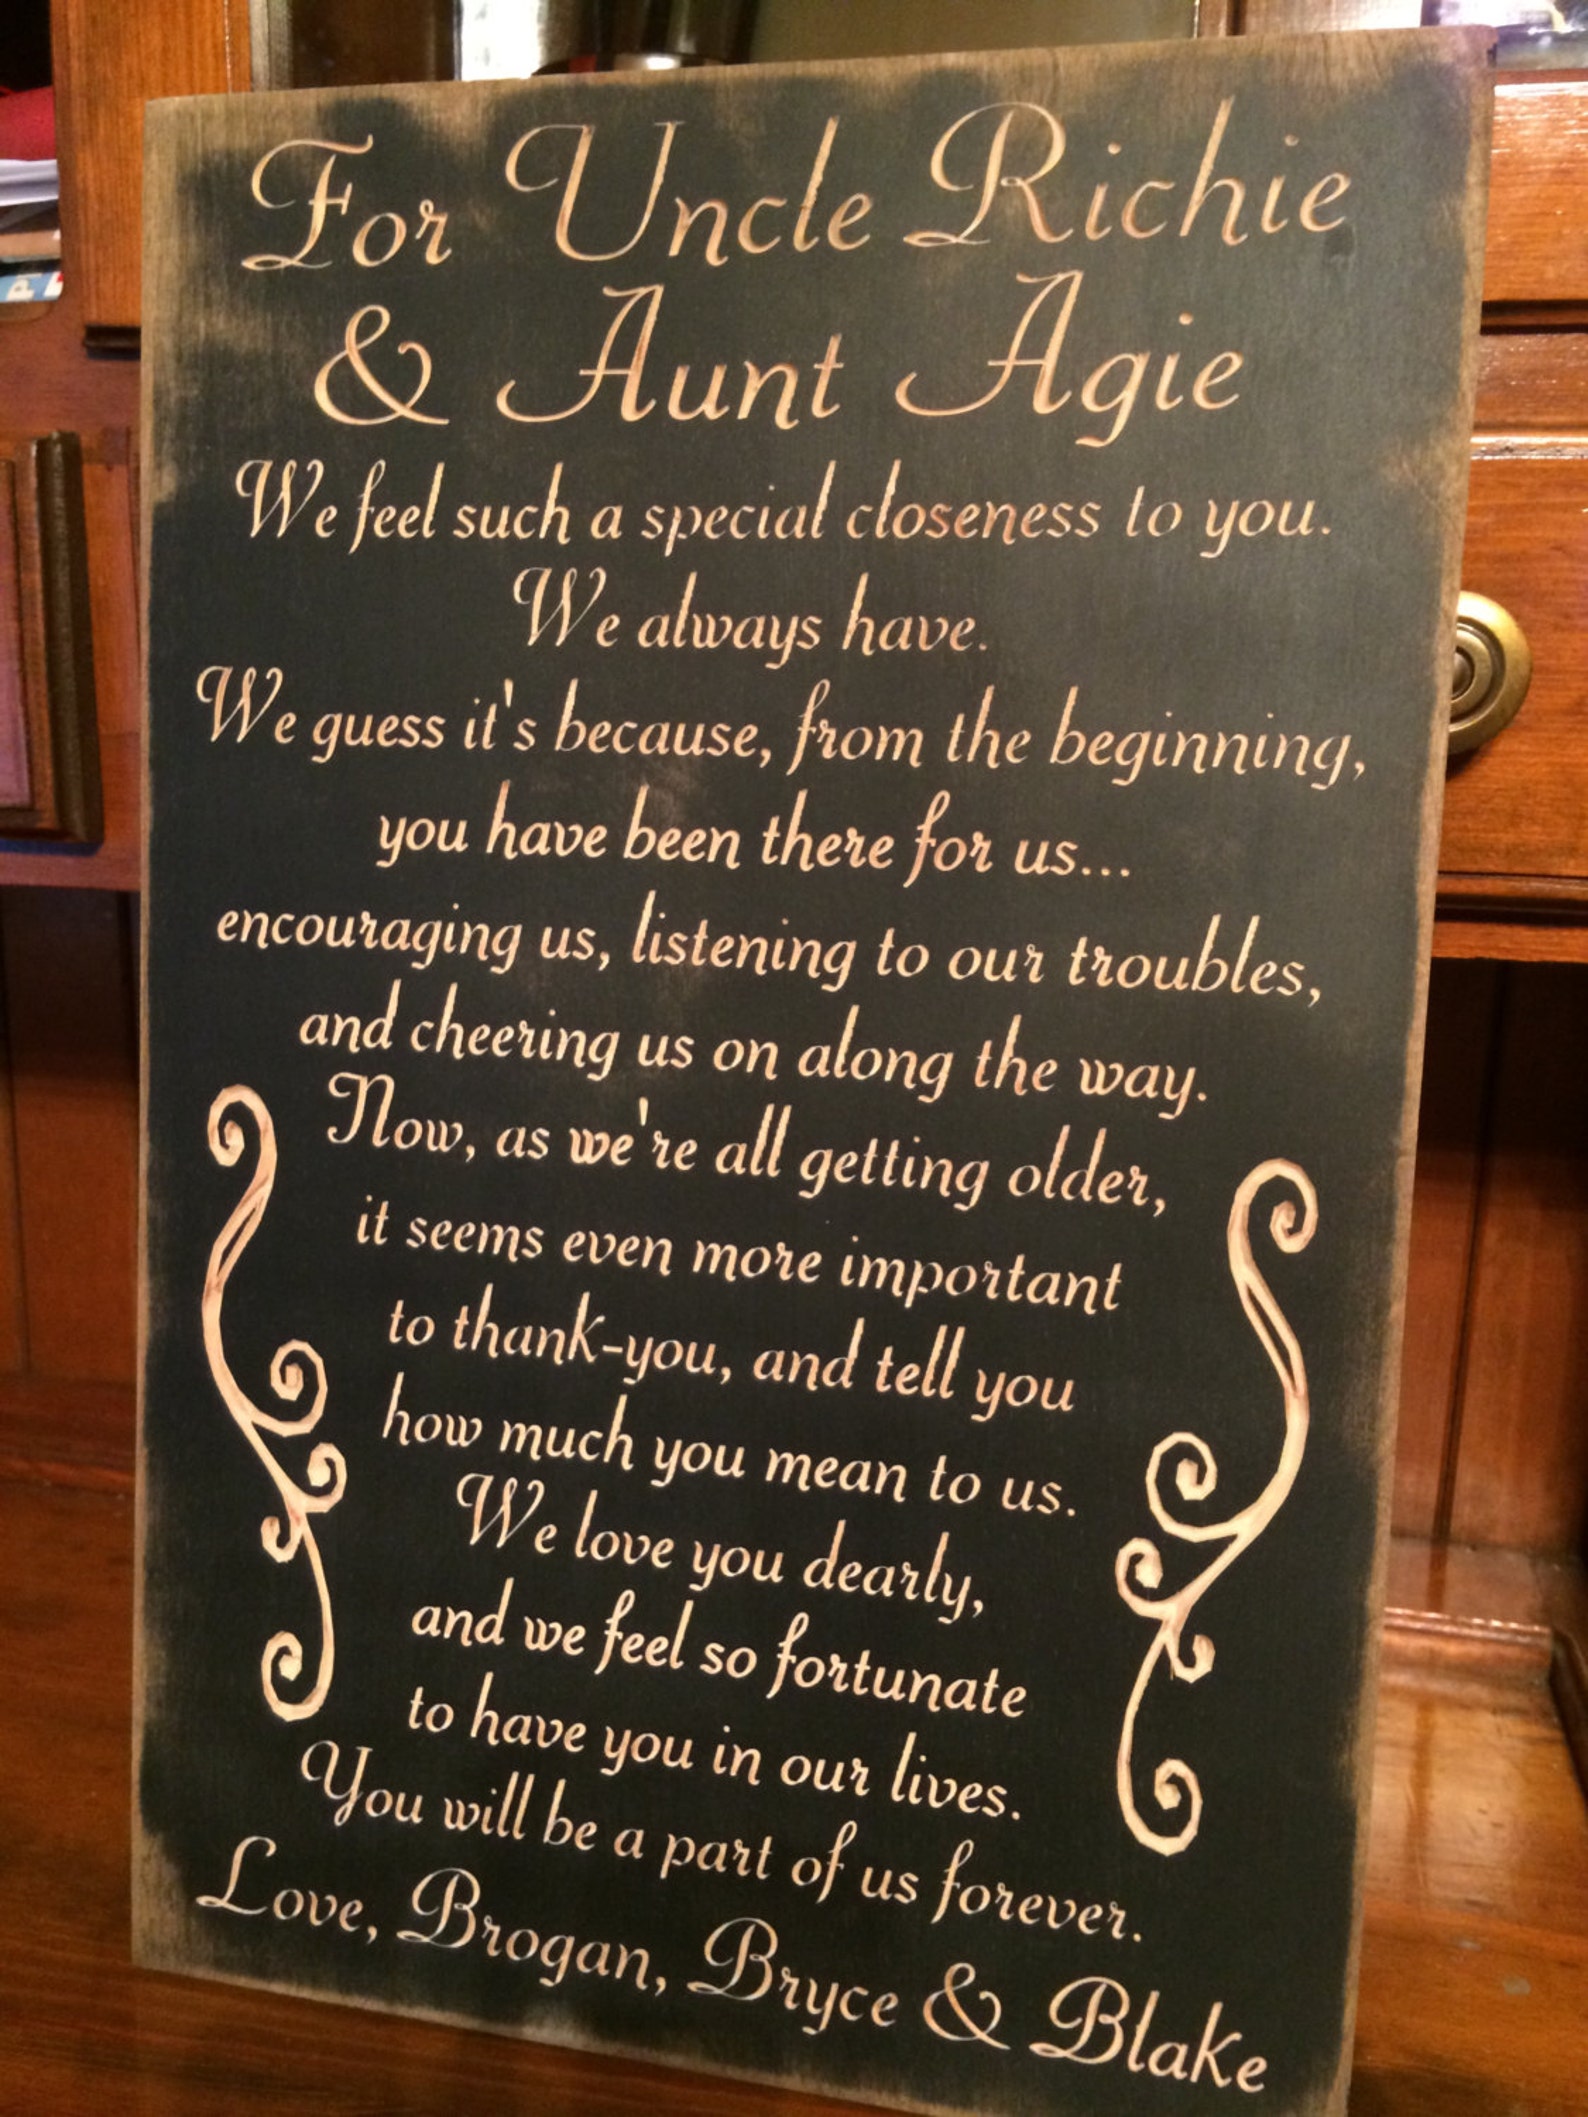 For Uncle Richie
& Aunt Agie
We feel such a special closeness to you.
We always have.
We guess it's because, from the beginning,
you have been there for us...
encouraging us, listening to our troubles,
and cheering us on along the way.
Now, as we're all getting older,
it seems even more important
to thank-you, and tell you
how much you mean to us.
We love you dearly,
and we feel so fortunate
to have you in our lives.
You will be a part of us forever.
Love, Brogan, Bryce & Blake